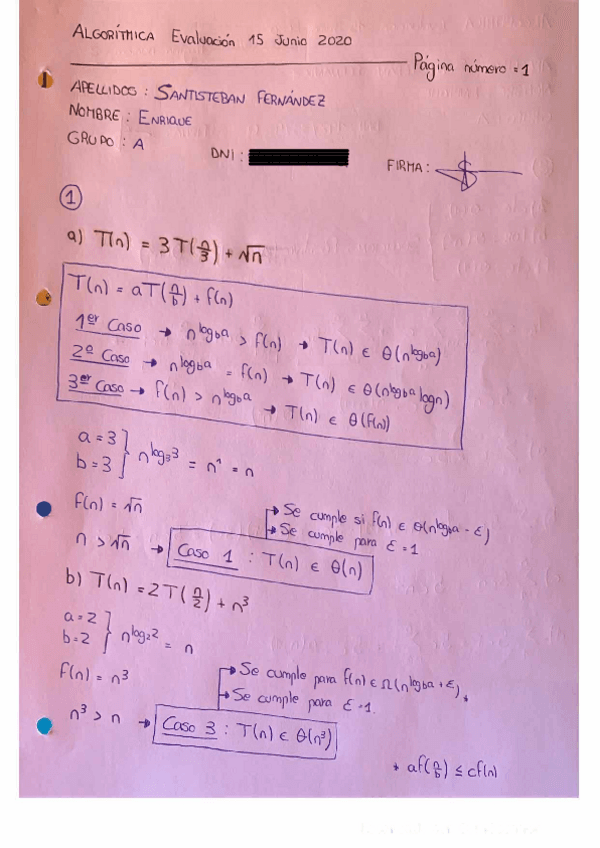 ALGORÍTMICA Evaluación 15 Junio 2020
Página número = 1
APELLIDOS : SANTISTEBAN FERNÁNDEZ
NOMBRE : ENRIQUE
GRUPO : A
DNI :
FIRMA :
1
a) T(n) = 3T(n/3) + √n
T(n) = aT(n/b) + f(n)
1er Caso → n^(log_b a) > f(n) → T(n) ∈ θ(n^(log_b a))
2º Caso → n^(log_b a) = f(n) → T(n) ∈ θ(n^(log_b a) logn)
3er Caso → f(n) > n^(log_b a) → T(n) ∈ θ(f(n))
a = 3
b = 3 } n^(log_3 3) = n^1 = n
f(n) = √n
→ Se cumple si f(n) ∈ θ(n^(log_b a - ε))
→ Se cumple para ε = 1
n > √n → Caso 1 : T(n) ∈ θ(n)
b) T(n) = 2T(n/2) + n³
a = 2
b = 2 } n^(log_2 2) = n
f(n) = n³
→ Se cumple para f(n) ∈ Ω(n^(log_b a + ε) *
→ Se cumple para ε = 1.
n³ > n → Caso 3 : T(n) ∈ θ(n³)
* af(n/b) ≤ cf(n)